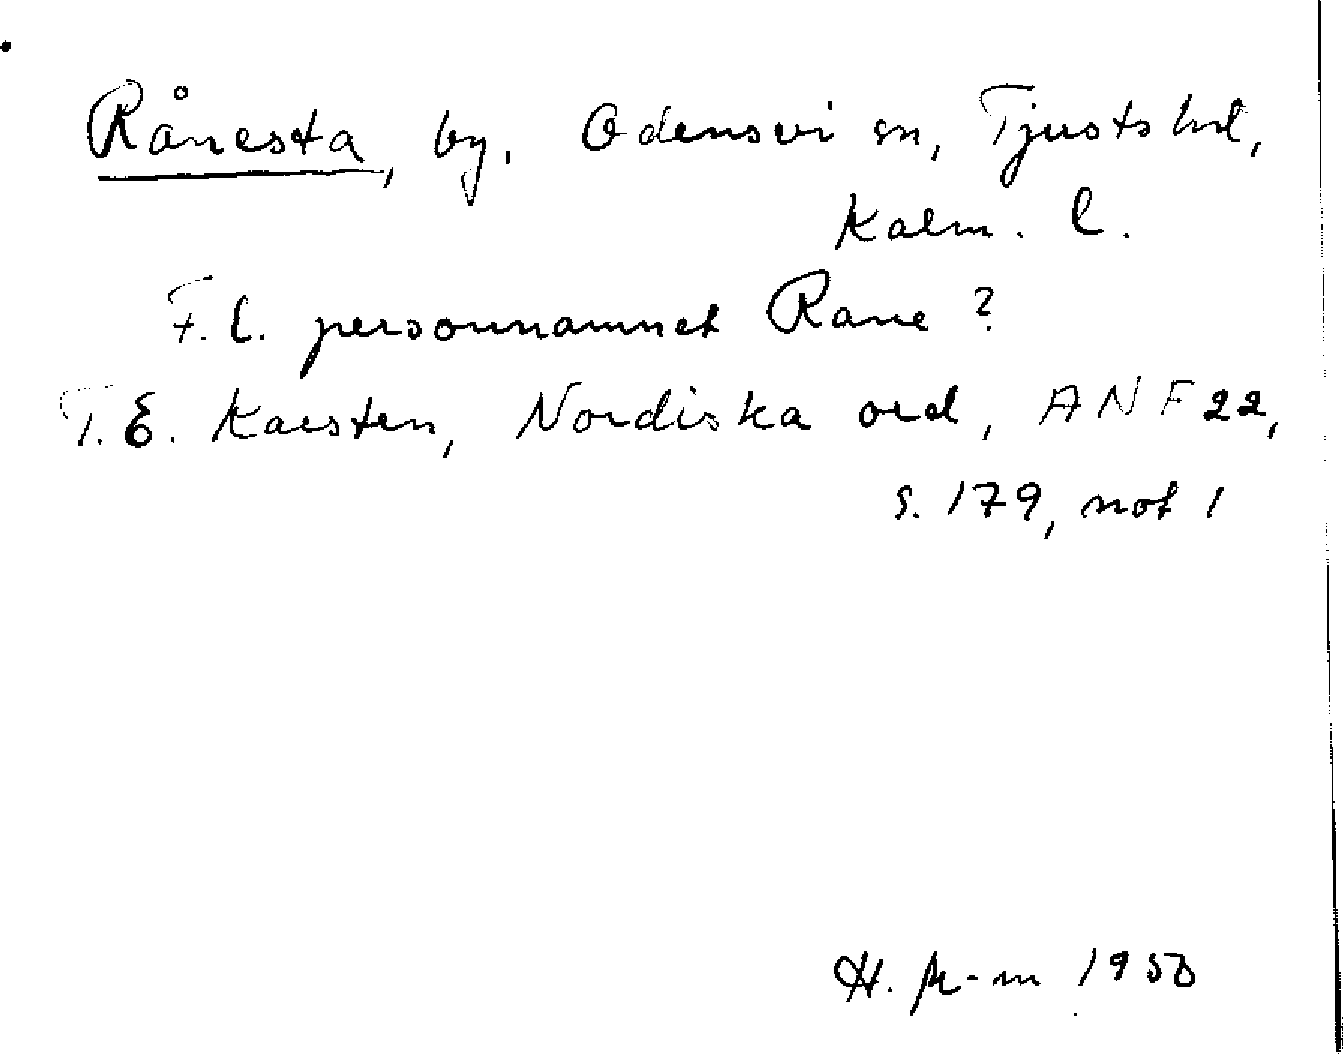 Rånesta, by. Odensvi sn, Tjusts hd,
Kalm. l.
F.l. personnamnet Rane?
T.E. Karsten, Nordiska ord, ANF 22,
s. 179, not 1
H. 1950